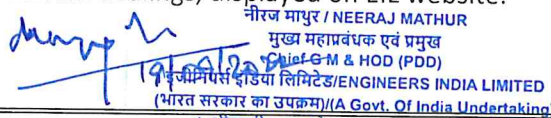 displayed on EIL website.
नीरज माथुर / NEERAJ MATHUR
मुख्य महाप्रबंधक एवं प्रमुख
Chief G M & HOD (PDD)
इंजीनियर्स इंडिया लिमिटेड/ENGINEERS INDIA LIMITED
(भारत सरकार का उपक्रम)/(A Govt. Of India Undertaking